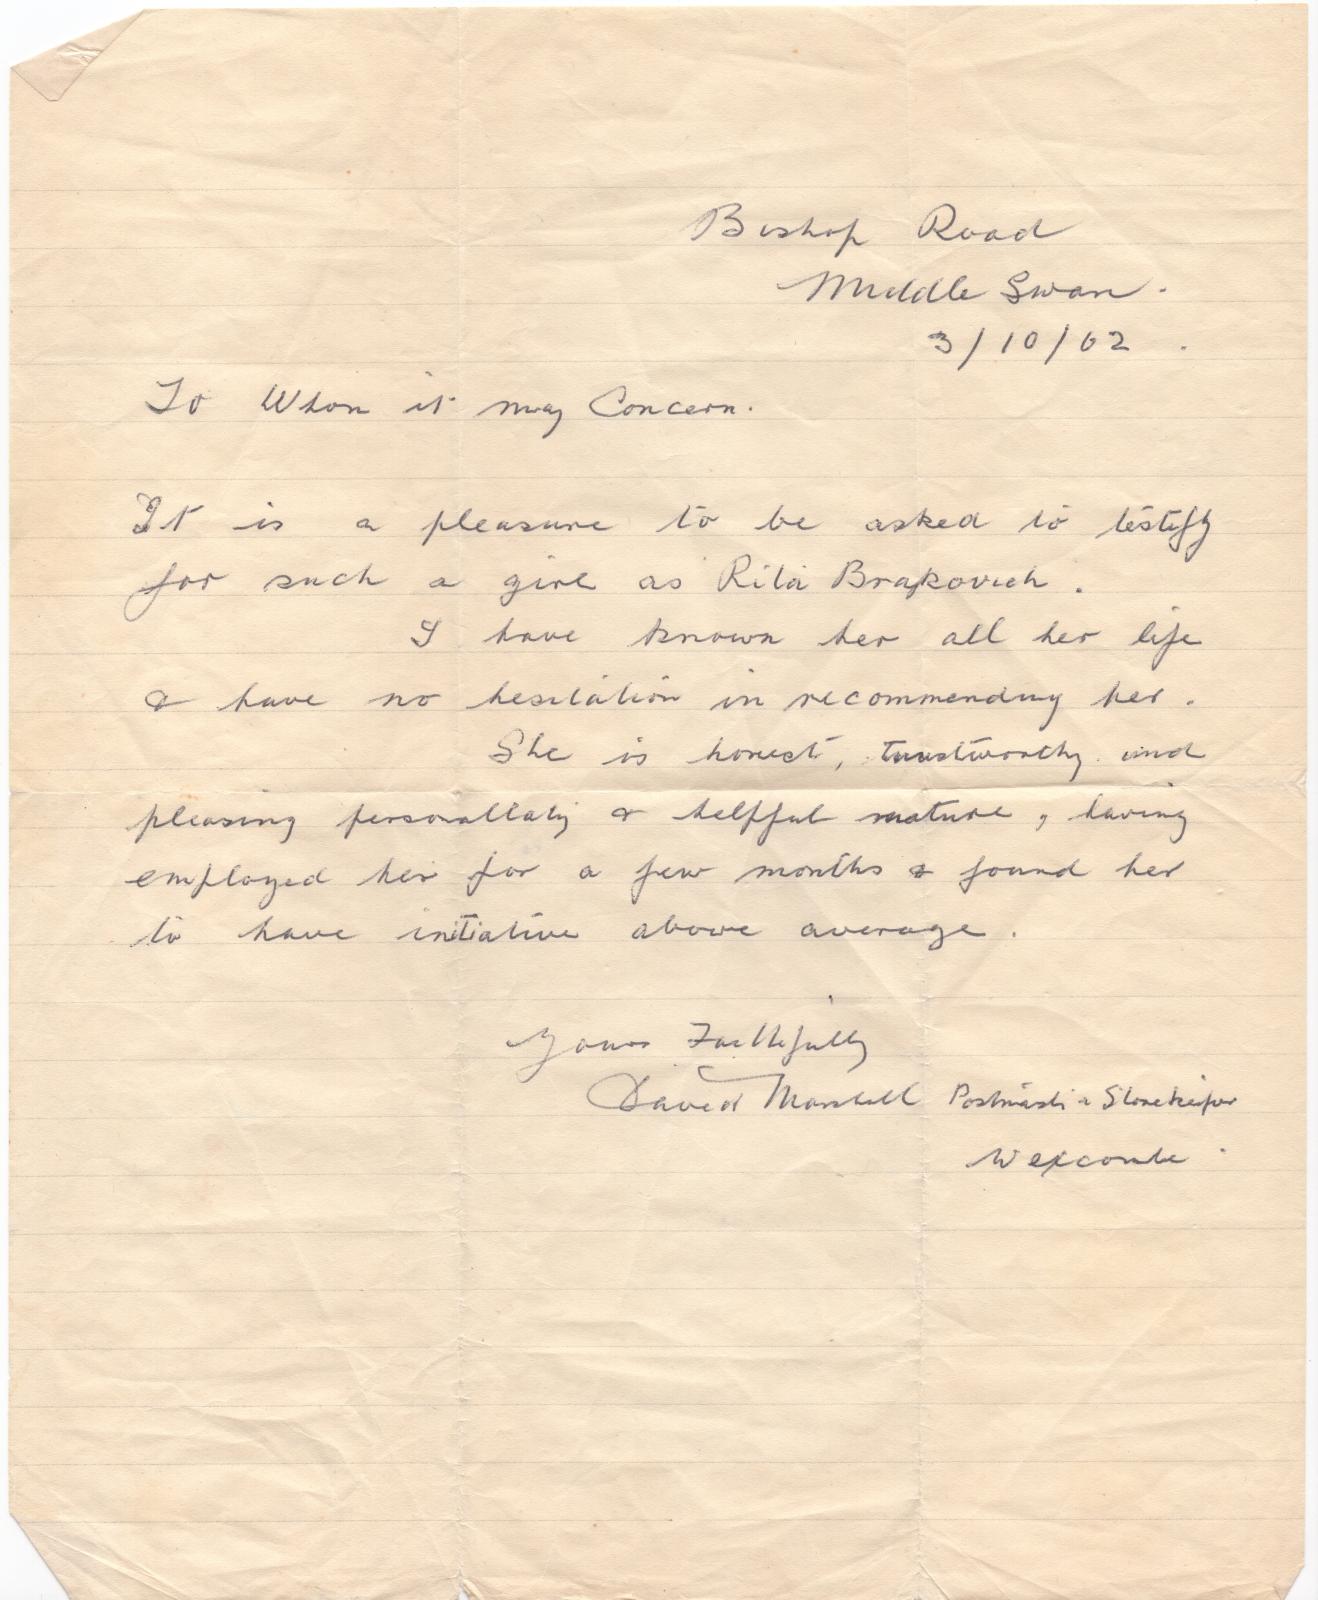 Bishop Road
Middle Swan.
3/10/62.
To Whom it may Concern.
It is a pleasure to be asked to testify
for such a girl as Rita Brajkovich.
I have known her all her life
& have no hesitation in recommending her.
She is honest, trustworthy and
pleasing personallaty & helpful nature, having
employed her for a few months & found her
to have initiative above average.
Yours Faithfully
David Marshall Storekeeper
Wexcombe.